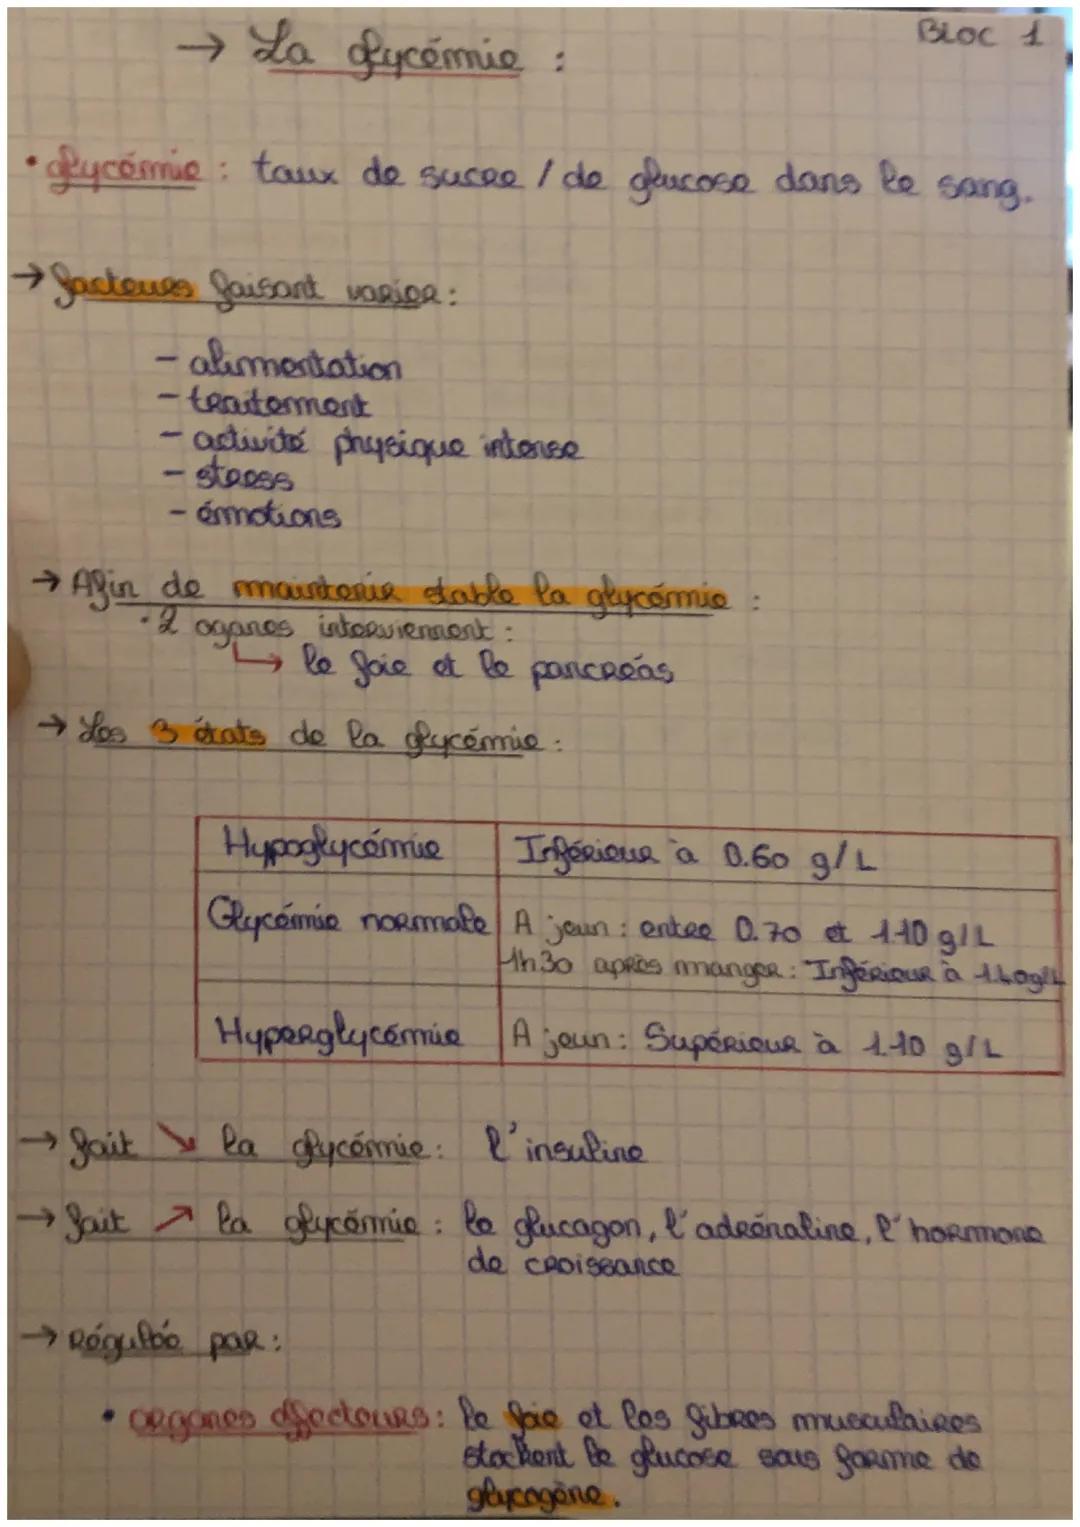 Bloc 1
→ La glycémie :
• glycémie : taux de sucre / de glucose dans le sang.
→ facteurs faisant varier :
- alimentation
- traitement
- activité physique intense
- stress
- émotions
→ Afin de maintenir stable la glycémie :
• 2 oganes interviennent :
↳ le foie et le pancréas
→ Les 3 états de la glycémie :
Hypoglycémie Inférieur à 0.60 g/L
Glycémie normale A jeun : entre 0.70 et 1.10 g/L
1h30 après manger : Inférieur à 1.40g/L
Hyperglycémie A jeun : Supérieur à 1.10 g/L
→ fait ↘ la glycémie : l'insuline
→ fait ↗ la glycémie : le glucagon, l'adrénaline, l'hormone
de croissance
→ Régulée par :
• organes effecteurs : le foie et les fibres musculaires
stockent le glucose sous forme de
glycogène.